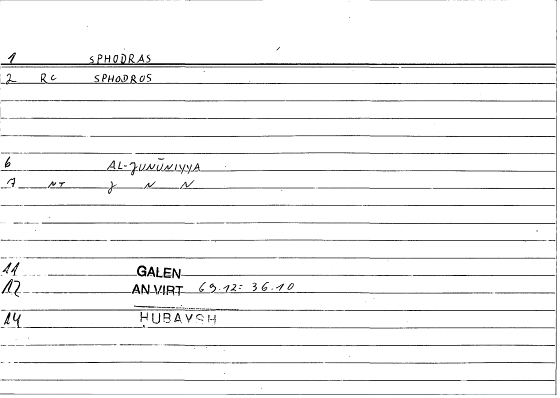 1 SPHODRAS
2 RC SPHODROS
6 AL-JUNŪNIYYA
7 NT J N N
11 GALEN
12 AN VIRT 69.12: 36.10
14 HUBAYSH